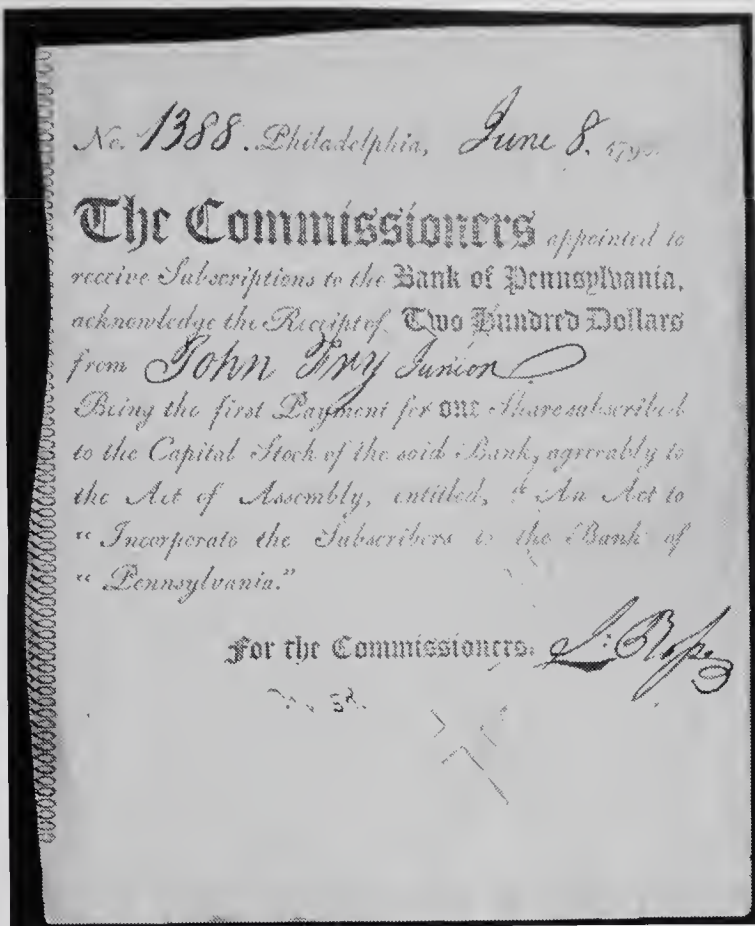 No. 1388. Philadelphia, June 8. 179
The Commissioners appointed to
receive Subscriptions to the Bank of Pennsylvania,
acknowledge the Receipt of Two Hundred Dollars
from John Fry Junior
Being the first Payment for one Share subscribed
to the Capital Stock of the said Bank, agreeably to
the Act of Assembly, entitled, "An Act to
"Incorporate the Subscribers to the Bank of
"Pennsylvania."
For the Commissioners.